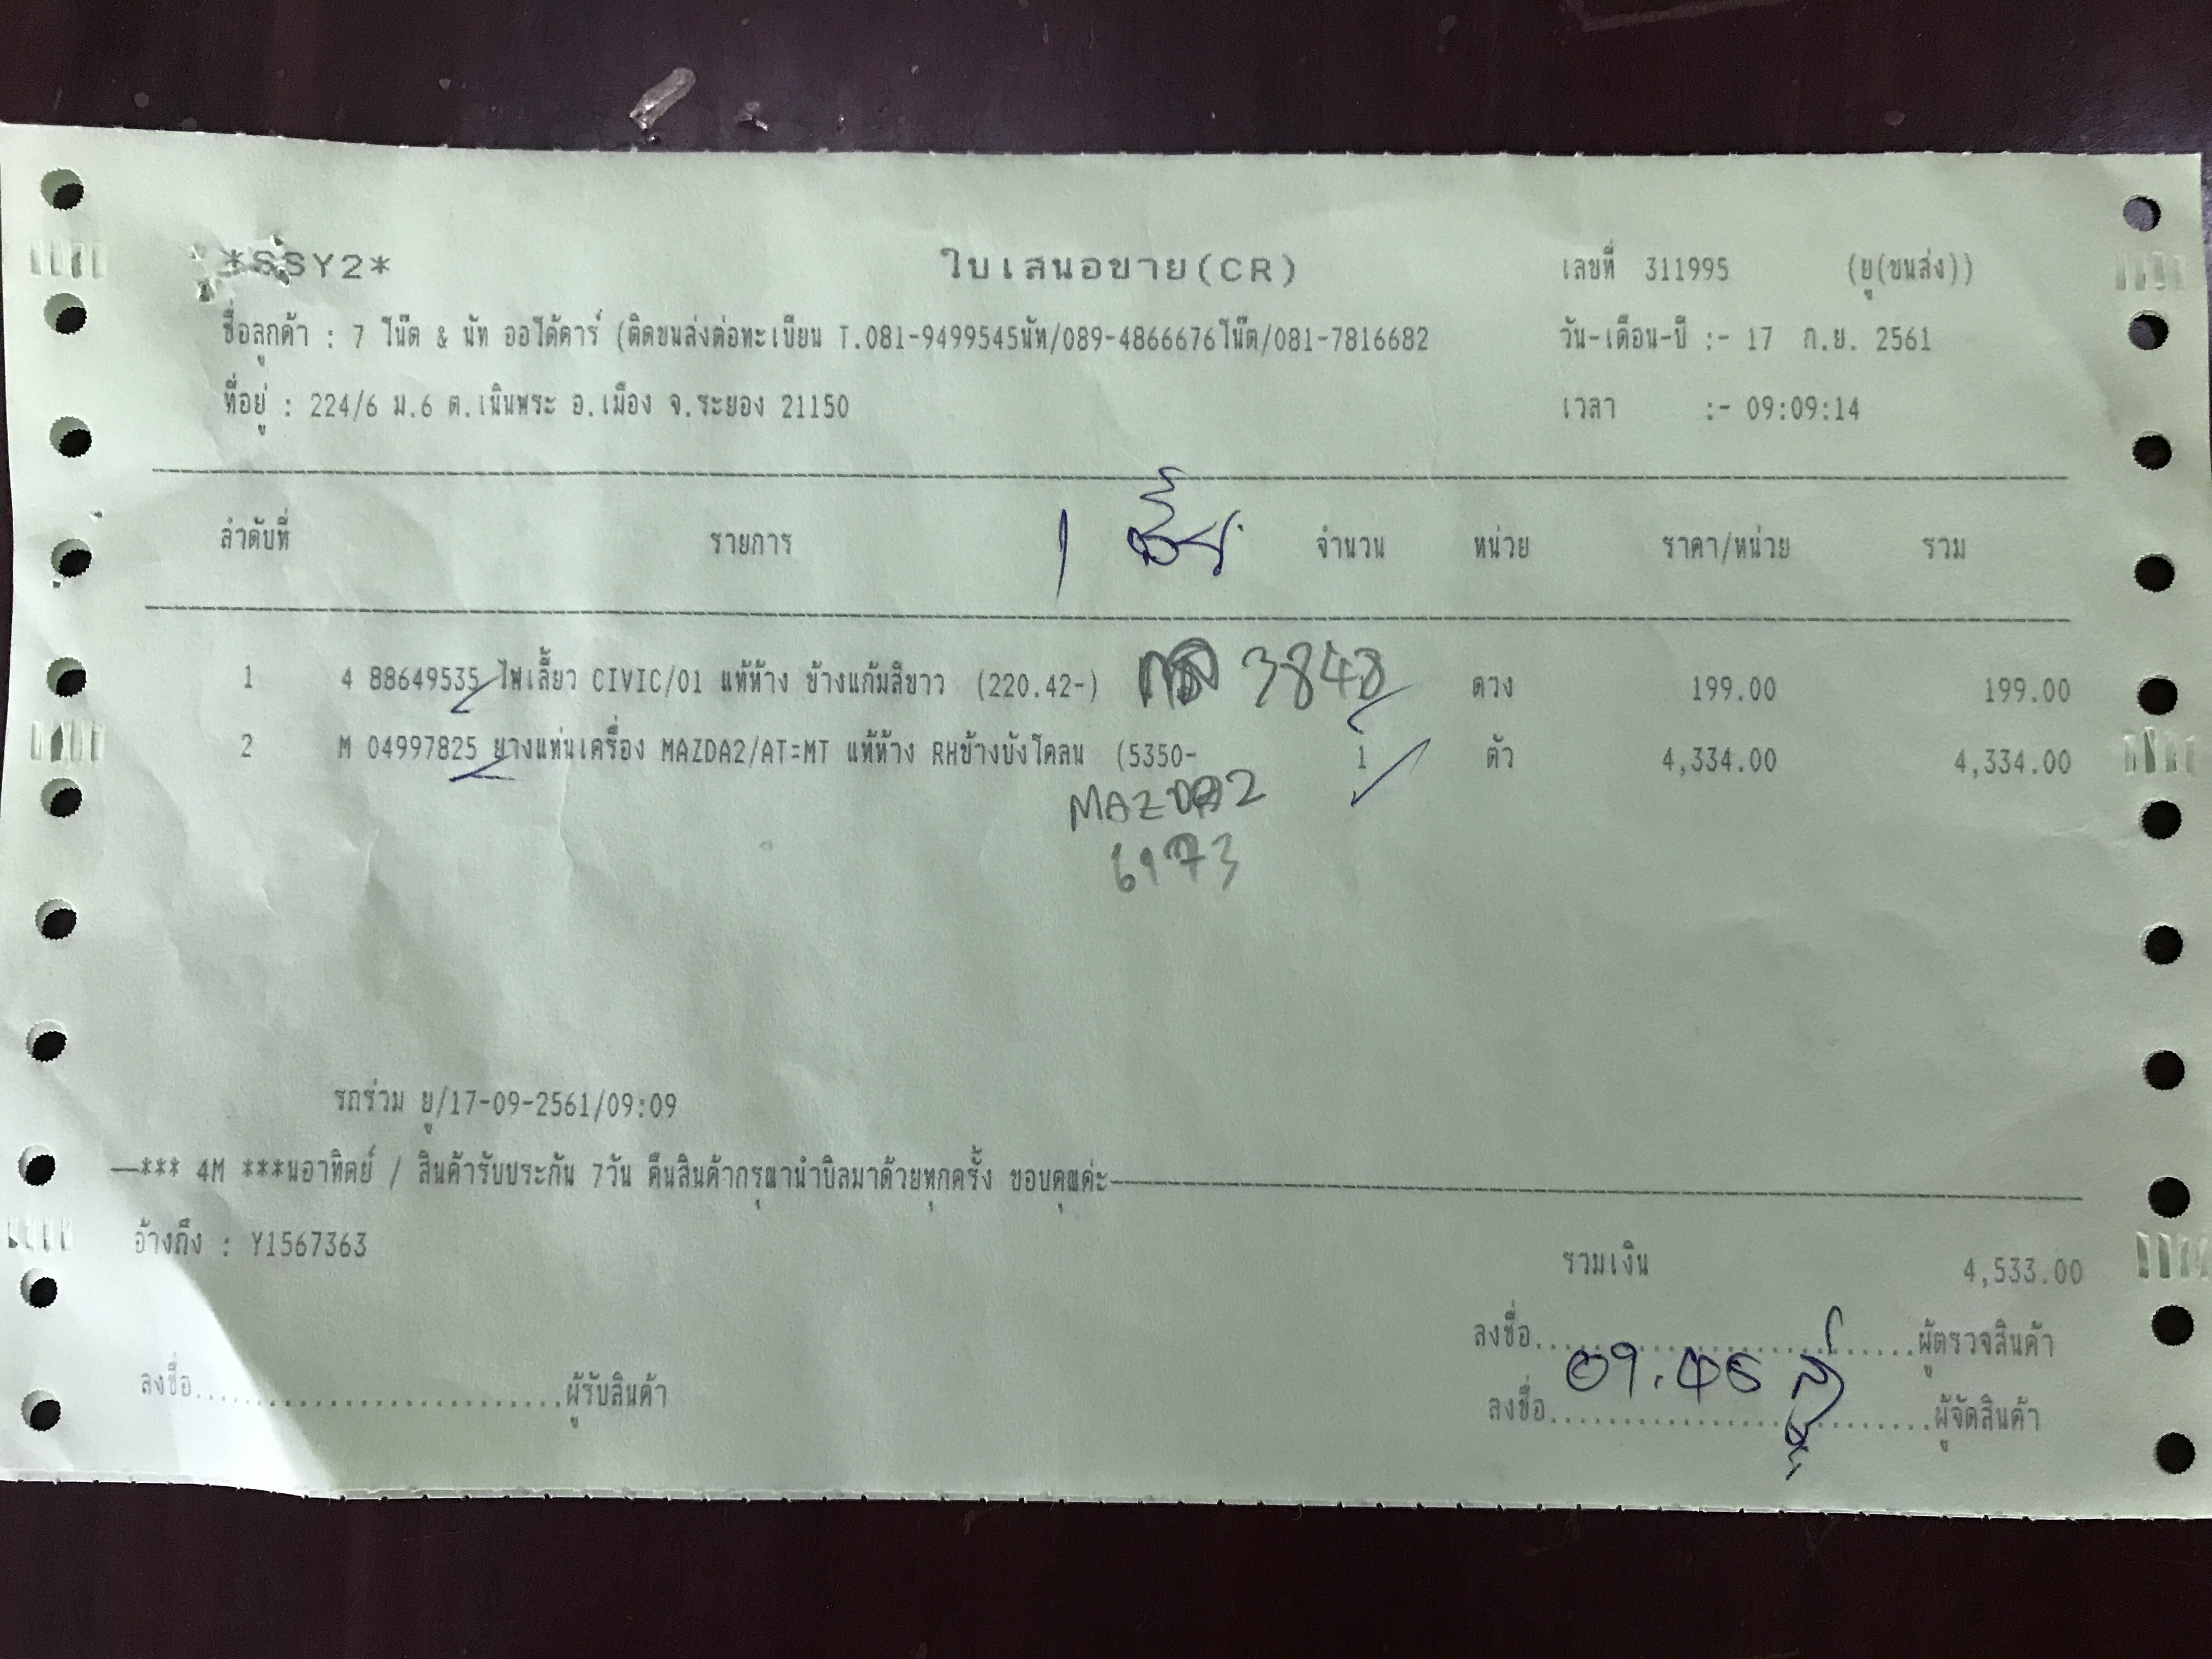 *SSY2* ใบเสนอขาย(CR) เลขที่ 311995 (ยู(ขนส่ง))
ชื่อลูกค้า : 7 โน๊ต & นัท ออโต้คาร์ (ติดขนส่งต่อทะเบียน T.081-9499545นัท/089-4866676โน๊ต/081-7816682 วัน-เดือน-ปี :- 17 ก.ย. 2561
ที่อยู่ : 224/6 ม.6 ต.เนินพระ อ.เมือง จ.ระยอง 21150 เวลา :- 09:09:14
ลำดับที่ รายการ 1 จำนวน หน่วย ราคา/หน่วย รวม
1 4 88649535 ไฟเลี้ยว CIVIC/01 แท้ห้าง ข้างแก้มสีขาว (220.42-) 3848 ดวง 199.00 199.00
2 M 04997825 ยางแท่นเครื่อง MAZDA2/AT=MT แท้ห้าง RHข้างบังโคลน (5350- 1 ตัว 4,334.00 4,334.00
MAZDA2
6973
รถร่วม ยู/17-09-2561/09:09
*** 4M ***นอาทิตย์ / สินค้ารับประกัน 7วัน คืนสินค้ากรุณานำบิลมาด้วยทุกครั้ง ขอบคุณค่ะ
อ้างถึง : Y1567363 รวมเงิน 4,533.00
ลงชื่อ..............................ผู้ตรวจสินค้า
09.46
ลงชื่อ..............................ผู้รับสินค้า ลงชื่อ..............................ผู้จัดสินค้า